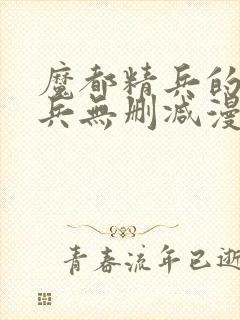 魔都精兵的
兵無删减漫
青春流年已逝